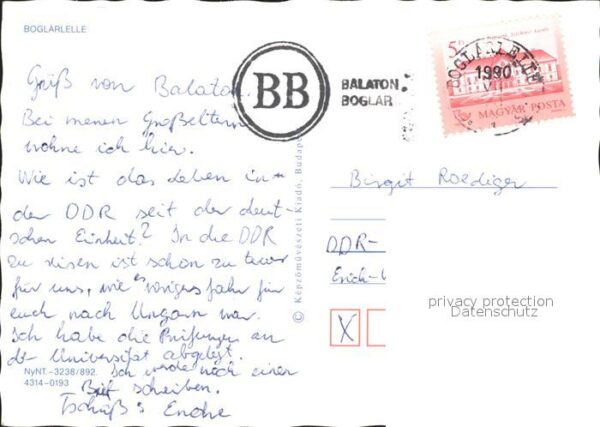 BOGLÁRLELLE
Grüß von Balaton.
Bei meinen Großeltern
wohne ich hier.
Wie ist das Leben in
der DDR seit der deut-
schen Einheit? In die DDR
zu reisen ist schon zu teuer
für uns, wie es voriges Jahr für
euch nach Ungarn war.
Ich habe die Prüfungen an
der Universität abgelegt.
Ich werde noch einen
Brief schreiben.
Tschüß: Endre
NyNT.-3238/892.
4314-0193
© Képzőművészeti Kiadó, Budapest
BB
BALATON
BOGLÁR
BOGLÁRLELLE
1990
MAGYAR POSTA
Birgit Roediger
DDR-
Erich-W
X
privacy protection
Datenschutz